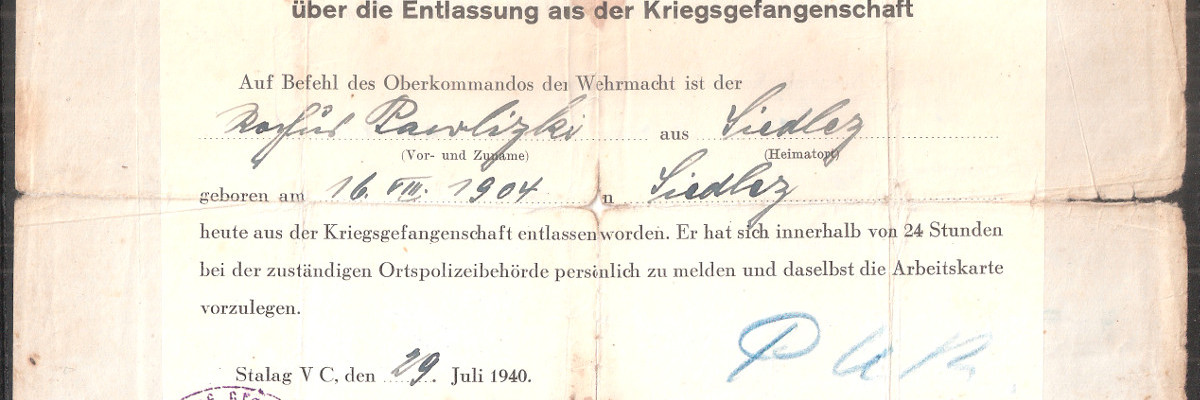 über die Entlassung aus der Kriegsgefangenschaft
Auf Befehl des Oberkommandos der Wehrmacht ist der
Rochus Pawlizki aus Siedlez
(Vor- und Zuname) (Heimatort)
geboren am 16. VIII. 1904 in Siedlez
heute aus der Kriegsgefangenschaft entlassen worden. Er hat sich innerhalb von 24 Stunden
bei der zuständigen Ortspolizeibehörde persönlich zu melden und daselbst die Arbeitskarte
vorzulegen.
Stalag V C, den 29. Juli 1940.